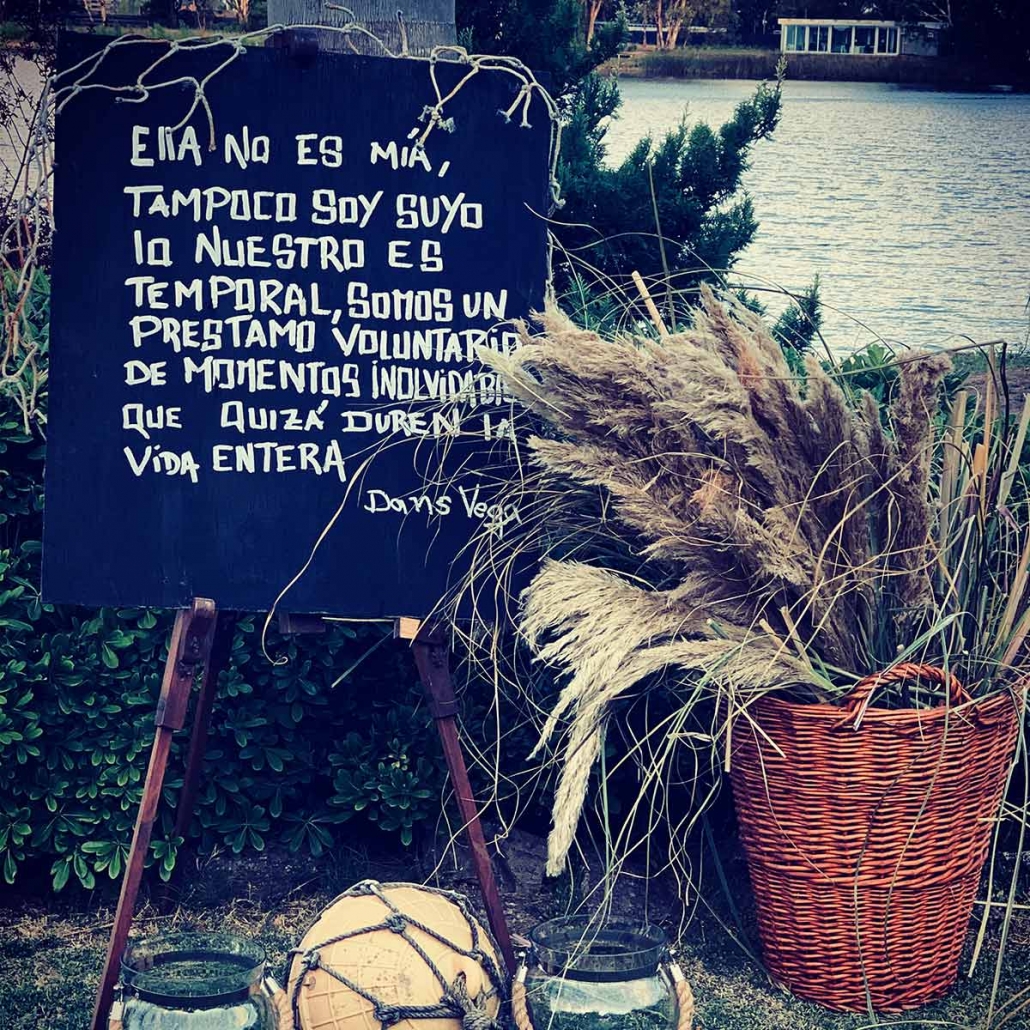 EllA NO ES MÍA,
TAMPOCO SOY SUYO
lO NUESTRO ES
TEMPORAL, SOMOS UN
PRESTAMO VOLUNTARIO
DE MOMENTOS INOLVIDABLES
QUE QUIZÁ DUREN LA
VIDA ENTERA
Dans Vega